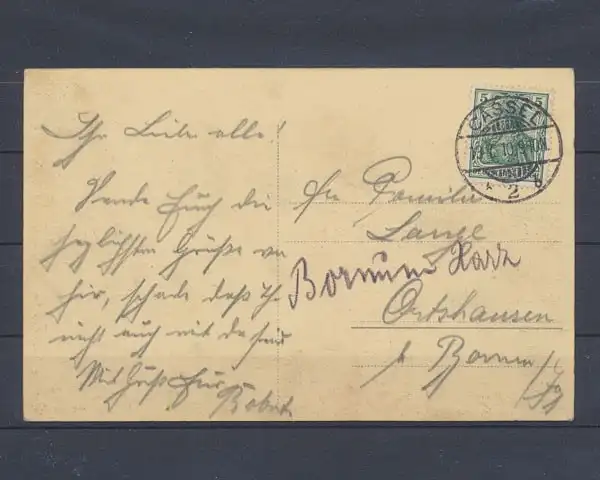 Ihr Lieben alle!
Sende Euch die
herzlichsten Grüße von
hier, schade daß Ihr
nicht auch mit da seid
Mit Gruß Euer
Robert
5 5
CASSEL
10
2
Familie
Lange
Bornum Harz
Ortshausen
b Bornum